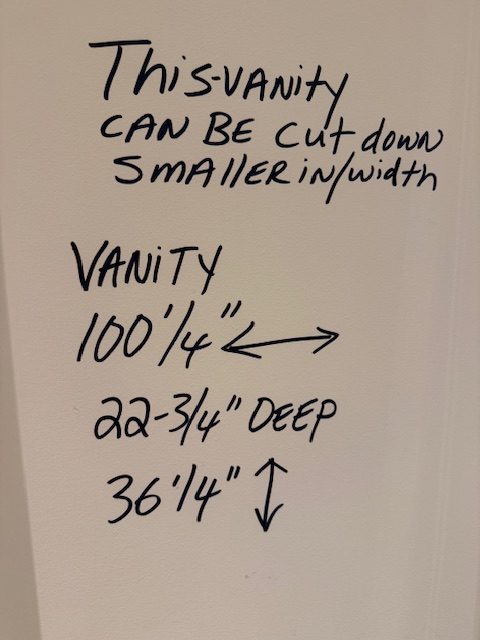 This-vanity
CAN BE cut down
SMALLER in/width
VANITY
100 1/4" ↔
22-3/4" DEEP
36 1/4" ↕